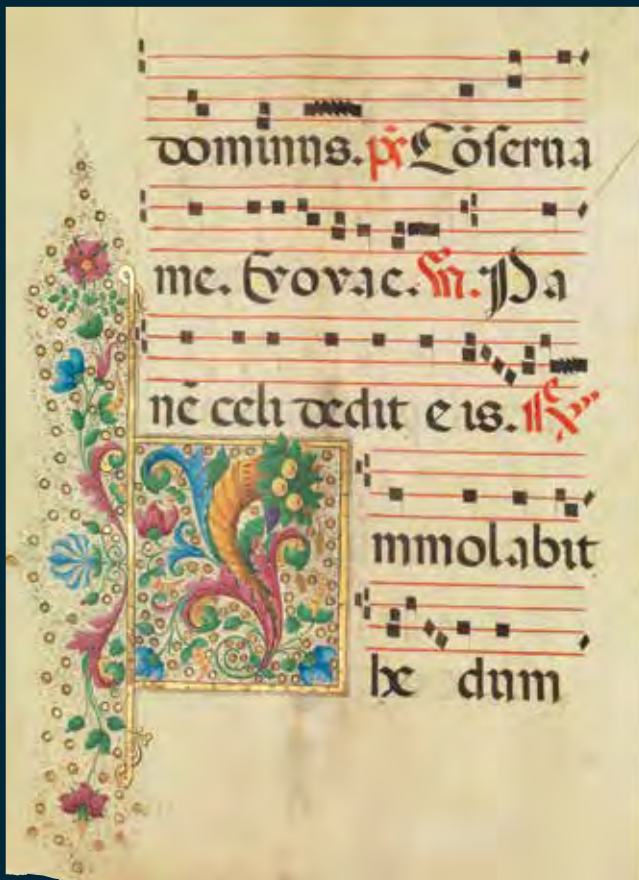 dominus. ps Cōserua
me. Evovae. Vn. Pa
nē celi dedit eis. Rx
mmolabit
he dum